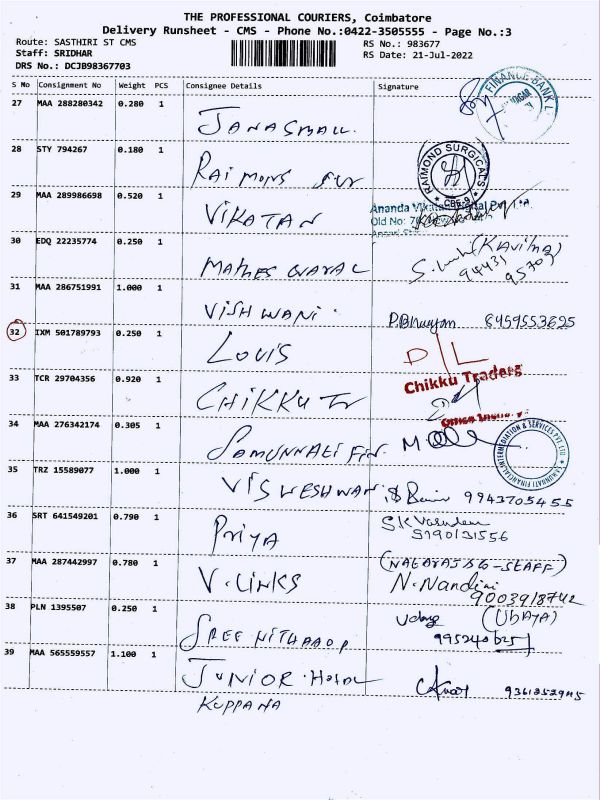 THE PROFESSIONAL COURIERS, Coimbatore
Delivery Runsheet - CMS - Phone No.:0422-3505555 - Page No.:3
Route: SASTHIRI ST CMS
RS No.: 983677
Staff: SRIDHAR
RS Date: 21-Jul-2022
DRS No.: DCJB98367703
S No Consignment No Weight PCS Consignee Details Signature
FINANCE BANK L
27 MAA 288280342 0.280 1
28 STY 794267 0.180 1
RAIMOND SURGICALS
CBE-9
RAIMONS
29 MAA 289986698 0.520 1
VIKATAN
Ananda Vikatan
Old No:
30 EDQ 22235774 0.250 1
(Kavitha)
94431
31 MAA 286751991 1.000 1
VISHWANI
32 IXM 501789793 0.250 1
LOUIS
D/L
33 TCR 29704356 0.920 1
Chikku Traders
CHIKKU Tr
34 MAA 276342174 0.305 1
SAMUNNATI FIN.
SAMUNNATI FINANCIAL INTERMEDIATION & SERVICES PVT LTD
35 TRZ 15589077 1.000 1
VISWESHWAR
9943705455
36 SRT 641549201 0.790 1
PRIYA
S.K Vasudevan
37 MAA 287442997 0.780 1
V-LINKS
N. Nandini
9003918742
38 PLN 1395507 0.250 1
Udaya (UDAYA)
39 MAA 565559557 1.100 1
JUNIOR
KUPPANA